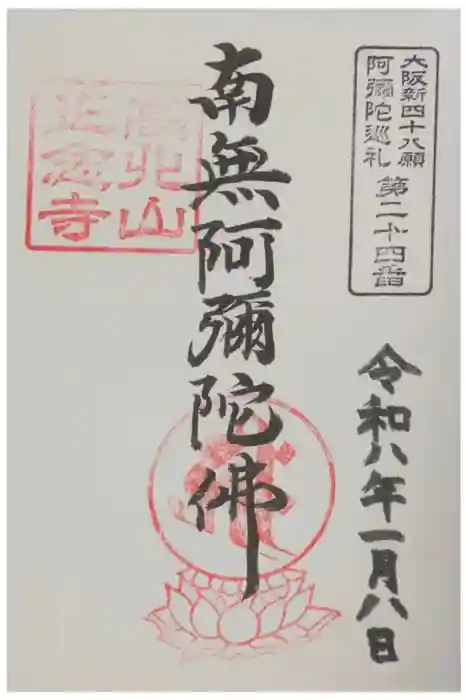 大阪新四十八願
阿彌陀巡礼
第二十四番
令和八年一月八日
南無阿彌陀佛
北山
正念寺